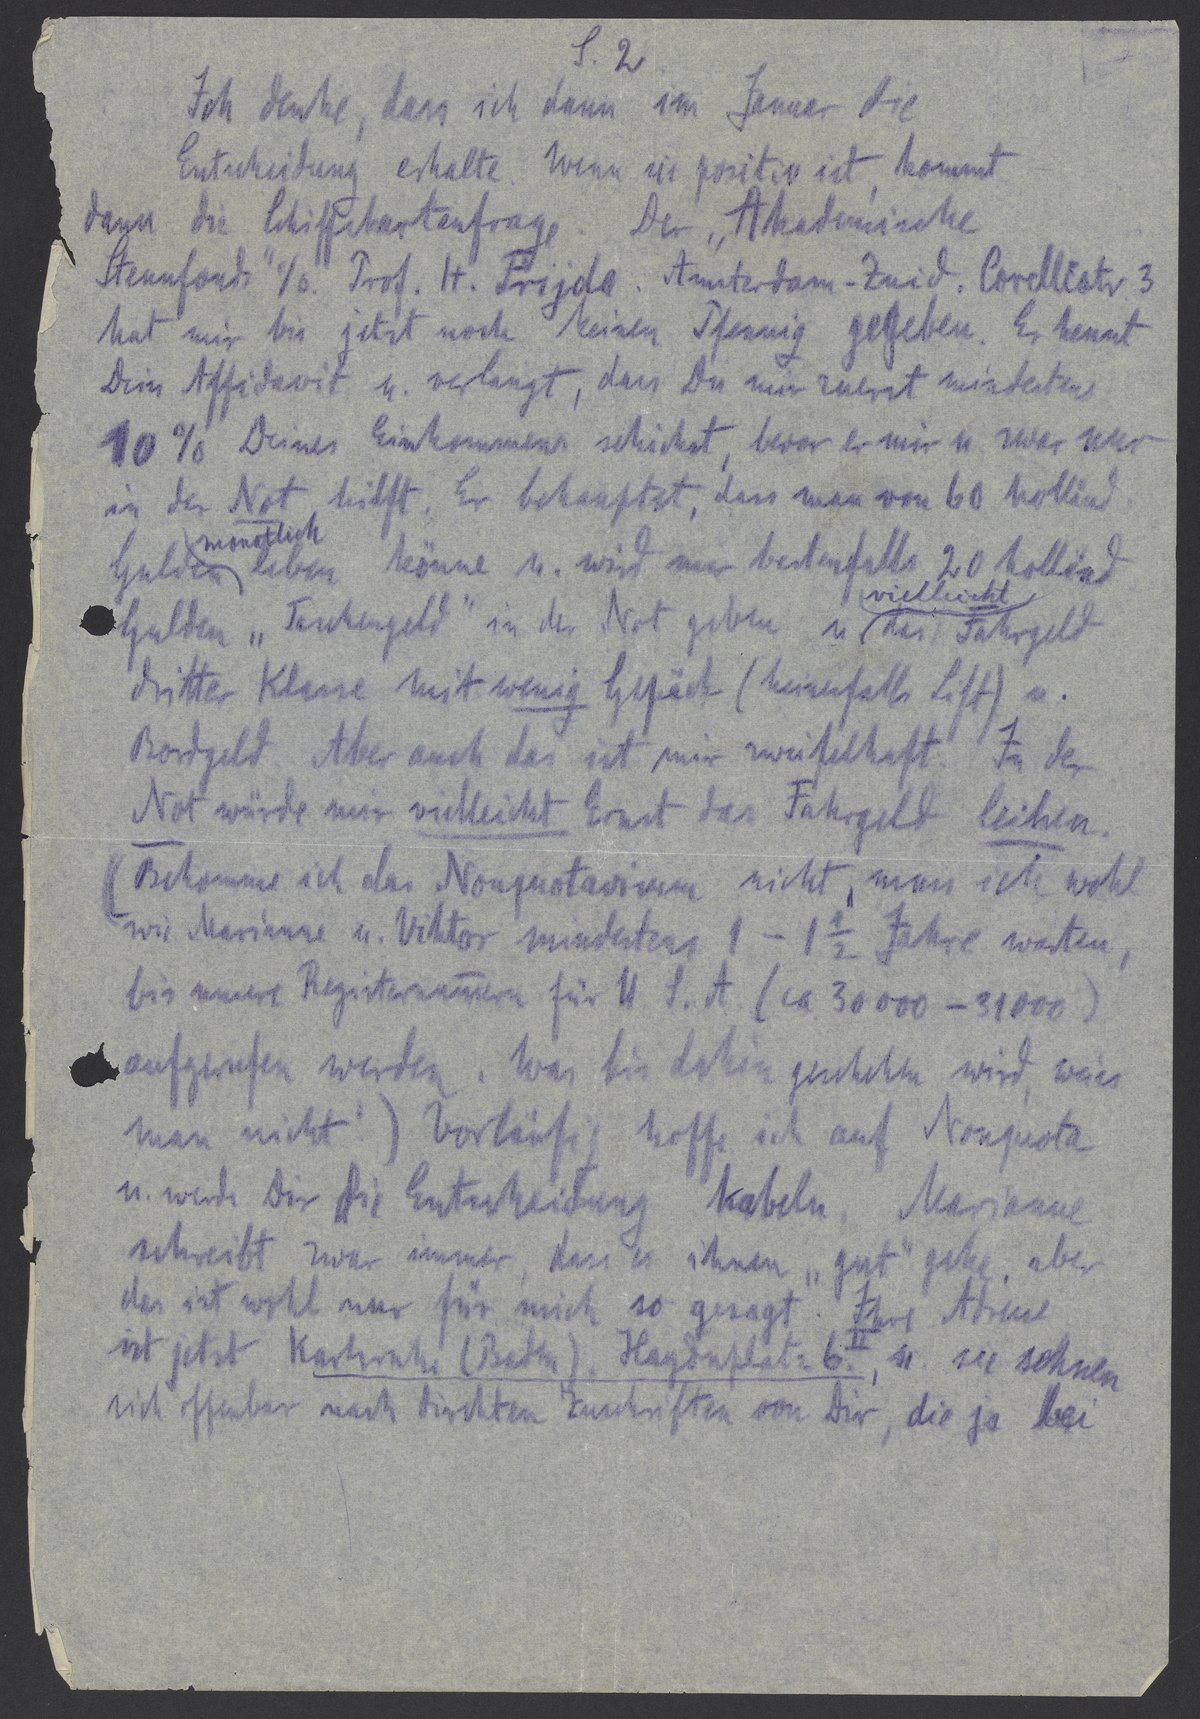 S. 2.
Ich denke, dass ich dann im Januar die
Entscheidung erhalte. Wenn sie positiv ist, kommt
dann die Schiffskartenfrage. Der „Akademische
Steunfonds“ c/o. Prof. H. Frijda. Amsterdam-Zuid. Corellistr. 3
hat mir bis jetzt noch keinen Pfennig gegeben. Er kennt
Dein Affidavit u. verlangt, dass Du mir zuerst mindestens
10 % Deines Einkommens schickst, bevor er mir u. zwar nur
in der Not hilft. Er behauptet, dass man von 60 holländ.
Gulden monatlich leben könne u. wird mir bestenfalls 20 holländ
Gulden „Taschengeld“ in der Not geben u. vielleicht das Fahrgeld
dritter Klasse mit wenig Gepäck (keinenfalls Lift) u.
Bordgeld. Aber auch das ist mir zweifelhaft. In der
Not würde mir vielleicht Ernst das Fahrgeld leihen.
(Bekomme ich das Nonquotavisum nicht, muss ich wohl
wie Marianne u. Viktor mindestens 1 – 1 1/2 Jahre warten,
bis unsere Registernum̅ern für U. S. A. (ca 30000 – 31000)
aufgerufen werden. Was bis dahin geschehen wird, weiss
man nicht!) Vorläufig hoffe ich auf Nonquota
u. werde Dir die Entscheidung kabeln. Marianne
schreibt zwar immer, dass es ihnen „gut“ gehe, aber
das ist wohl nur für mich so gesagt. Ihre Adresse
ist jetzt Karlsruhe (Baden). Haydnplatz 6.II, u. sie sehnen
sich offenbar nach direkten Zuschriften von Dir, die ja bei